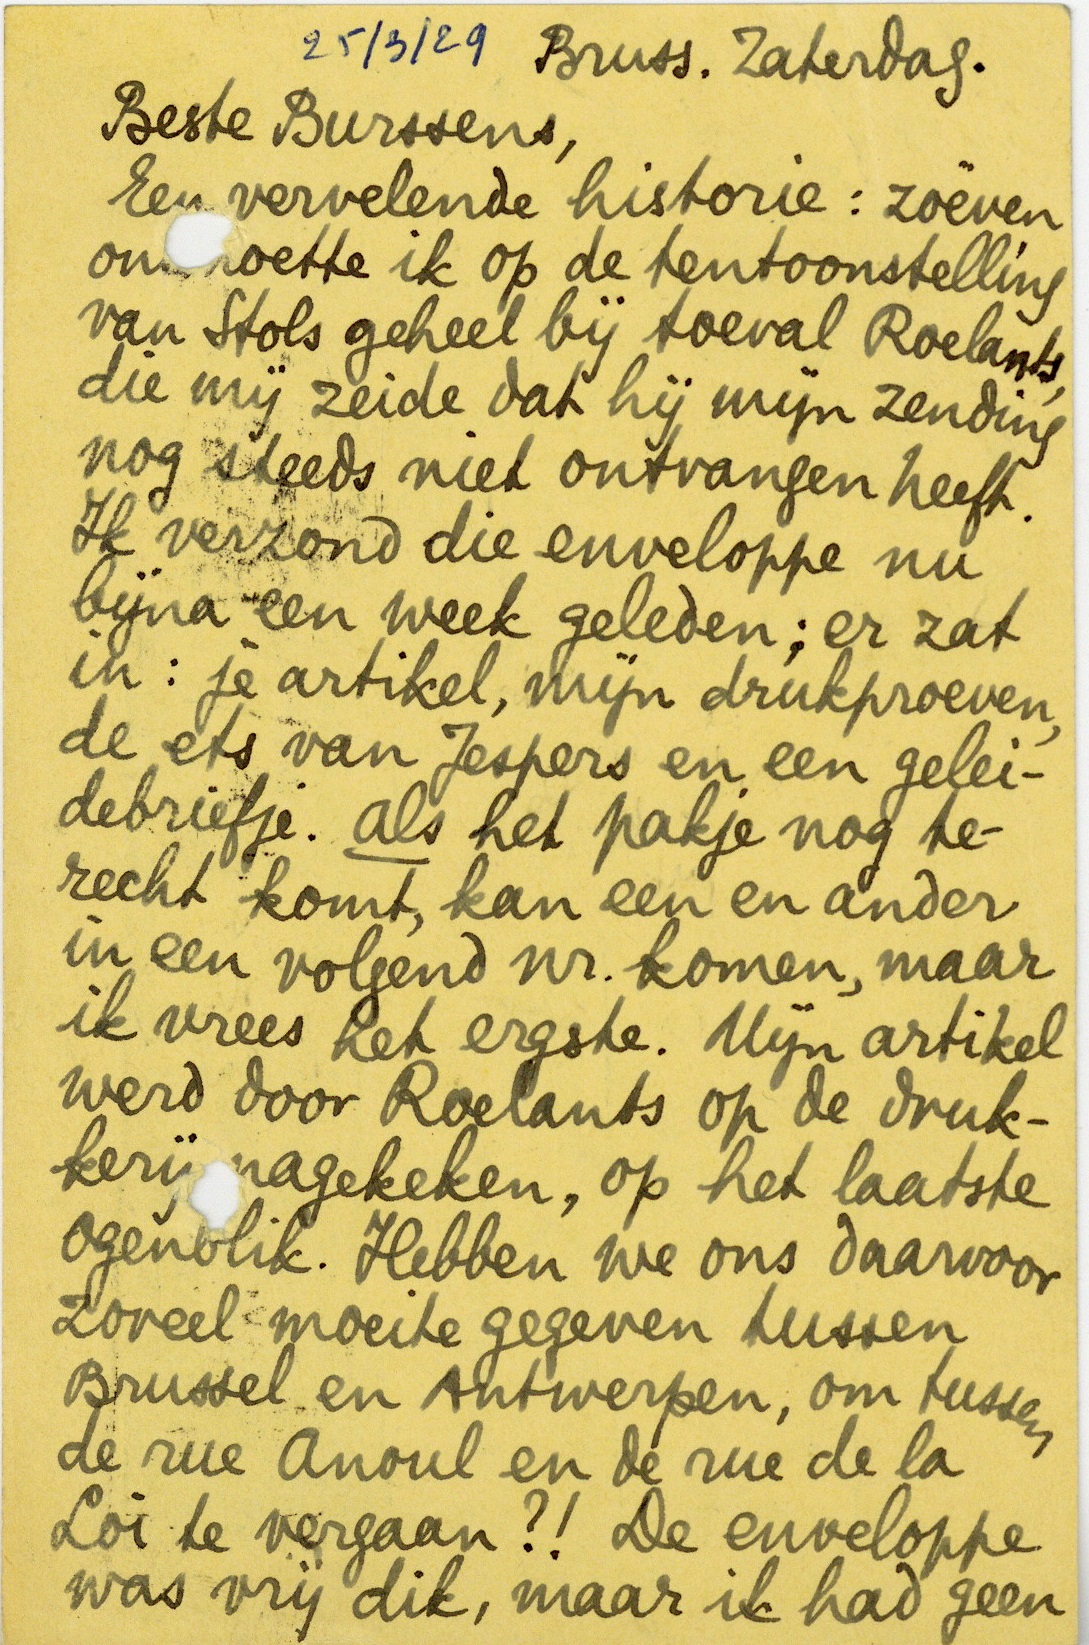 25/3/29 Bruss. Zaterdag.
Beste Burssens,
Een vervelende historie : zoëven
ontmoette ik op de tentoonstelling
van Stols geheel bij toeval Roelants,
die mij zeide dat hij mijn zending
nog steeds niet ontvangen heeft.
Ik verzond die enveloppe nu
bijna een week geleden ; er zat
in : je artikel, mijn drukproeven,
de ets van Jespers en een gelei-
debriefje. Als het pakje nog te-
recht komt, kan een en ander
in een volgend nr. komen, maar
ik vrees het ergste. Mijn artikel
werd door Roelants op de druk-
kerij nagekeken, op het laatste
ogenblik. Hebben we ons daarvoor
zoveel moeite gegeven tussen
Brussel en Antwerpen, om tussen
de rue Anoul en de rue de la
Loi te vergaan ?! De enveloppe
was vrij dik, maar ik had geen